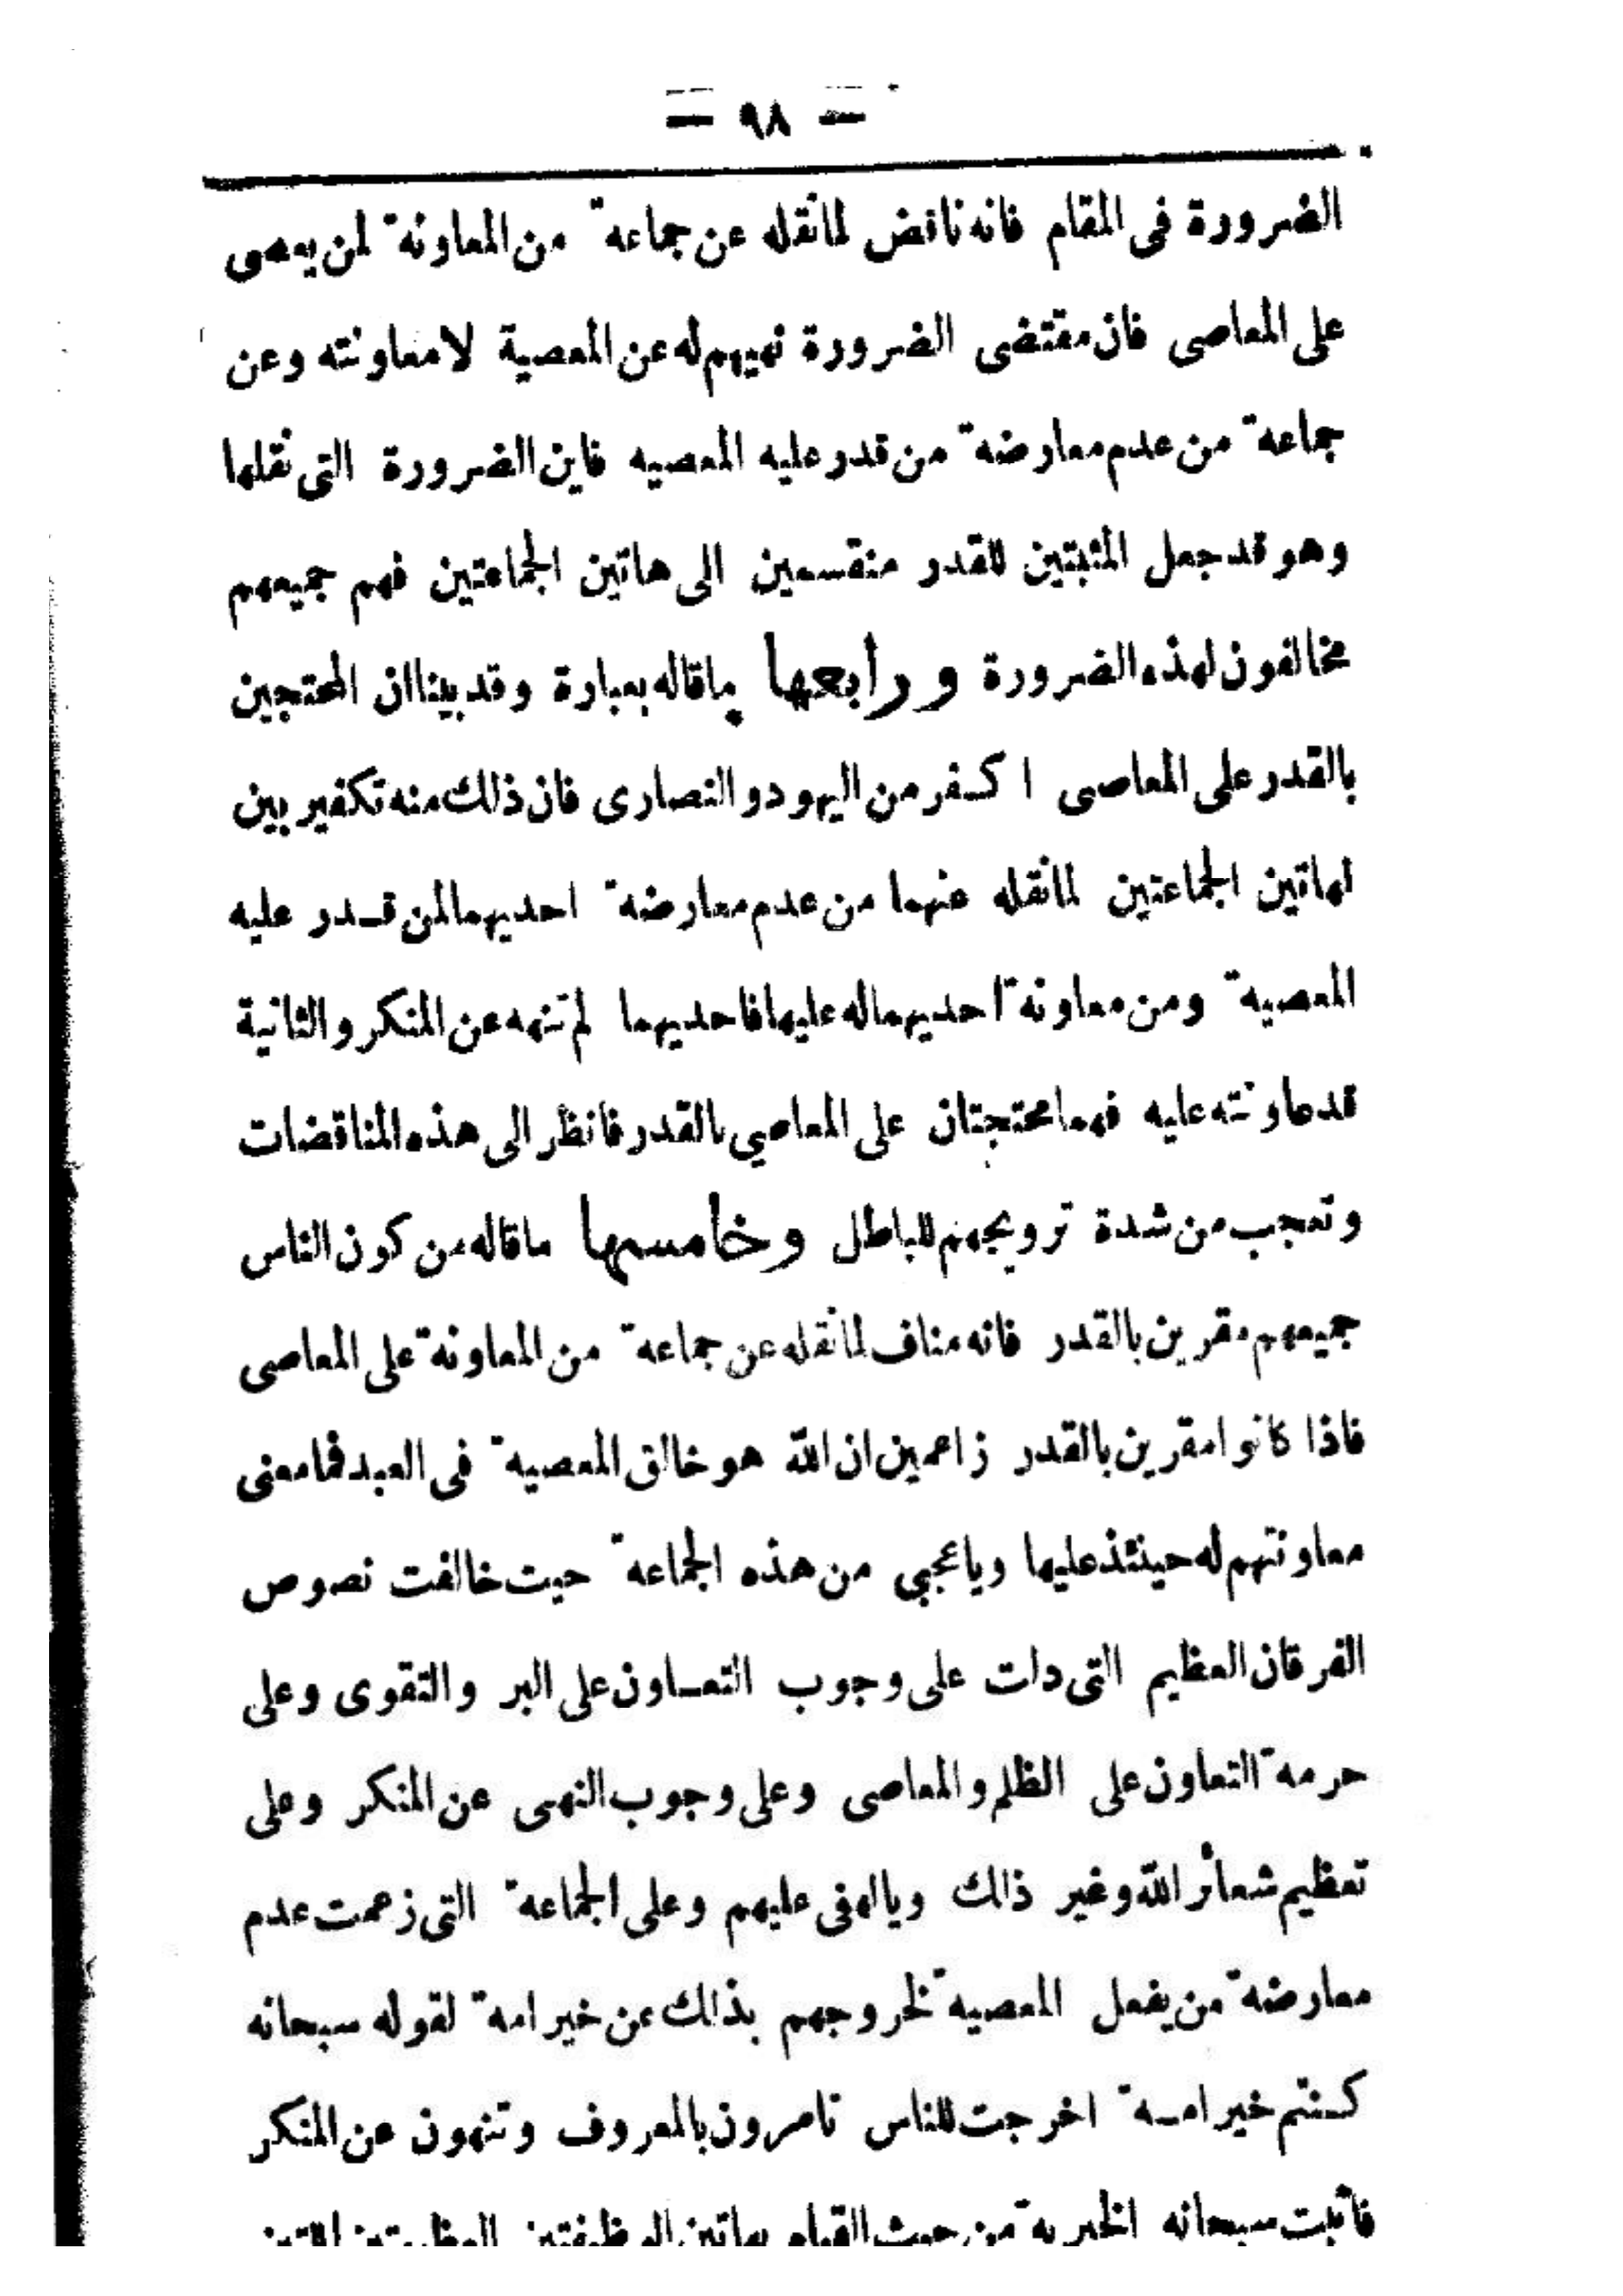 — ٩٨ —
الضرورة فى المقام فانه ناقض لمانقله عن جماعة من المعاونة لمن يعصى
على المعاصى فان مقتضى الضرورة نهيهم له عن المعصية لا معاونته وعن
جماعة من عدم معارضة من قدر عليه المعصيه فاين الضرورة التى نقلها
وهو قد جعل المثبتين للقدر منقسمين الى هاتين الجماعتين فهم جميعهم
مخالفون لهذه الضرورة ورابعها ماقاله بعبارة وقد بينا ان المحتجين
بالقدر على المعاصى اكفر من اليهود والنصارى فان ذلك منه تكفير بين
لهاتين الجماعتين لمانقله عنهما من عدم معارضة احديهما لمن قدر عليه
المعصية ومن معاونة احديهما له عليها فاحديهما لم تنهه عن المنكر والثانية
قد عاونته عليه فهما محتجتان على المعاصي بالقدر فانظر الى هذه المناقضات
وتعجب من شدة ترويجهم للباطل وخامسها ماقاله من كون الناس
جميعهم مقرين بالقدر فانه مناف لمانقله عن جماعة من المعاونة على المعاصى
فاذا كانوا مقرين بالقدر زاعمين ان الله هو خالق المعصية فى العبد فمامعنى
معاونتهم له حينئذ عليها وياعجبي من هذه الجماعة حيت خالفت نصوص
الفرقان العظيم التى دات على وجوب التعاون على البر والتقوى وعلى
حرمة التعاون على الظلم والمعاصى وعلى وجوب النهى عن المنكر وعلى
تعظيم شعائر الله وغير ذالك ويالهفى عليهم وعلى الجماعة التى زعمت عدم
معارضة من يفعل المعصية لخروجهم بذالك عن خير امة لقوله سبحانه
كنتم خير امة اخرجت للناس تامرون بالمعروف وتنهون عن المنكر
فأثبت سبحانه الخيرية من حيث القيام بهاتين الوظيفتين العظيمتين اللتين